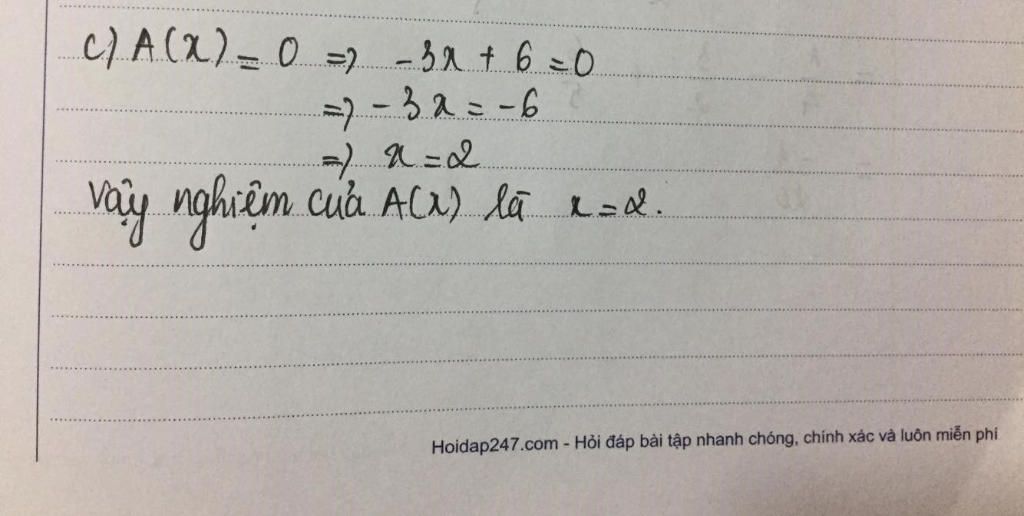 c) A(x) = 0 => -3x + 6 = 0
=> -3x = -6
=> x = 2
Vậy nghiệm của A(x) là x = 2.
Hoidap247.com - Hỏi đáp bài tập nhanh chóng, chính xác và luôn miễn phí